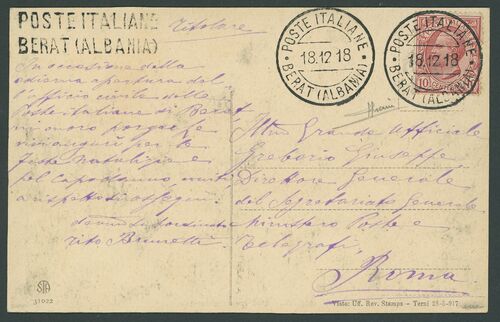 POSTE ITALIANE
BERAT (ALBANIA)
Titolare
POSTE ITALIANE
18.12.18
BERAT (ALBANIA)
POSTE ITALIANE
18.12.18
BERAT (ALBANIA)
10
In occasione della
odierna apertura del
l'ufficio civile delle
Poste italiane di Berat
mi onoro porgerLe
auguri per le
feste natalizie e
pel capodanno
rispettosi ossequi.
Brunetti
Grande Ufficiale
Giuseppe
Direttore Generale
del Segretariato Generale
Ministero Poste e
Telegrafi
Roma
STA
31022
Visto: Uff. Rev. Stampa - Terni 917